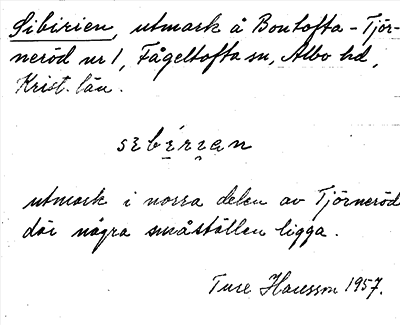 Sibirien, utmark å Bontofta-Tjör-
neröd nr 1, Fågeltofta sn, Albo hd,
Krist. län.
sɛbérɪan
utmark i norra delen av Tjörneröd
där några småställen ligga.
Ture Hansson 1957.